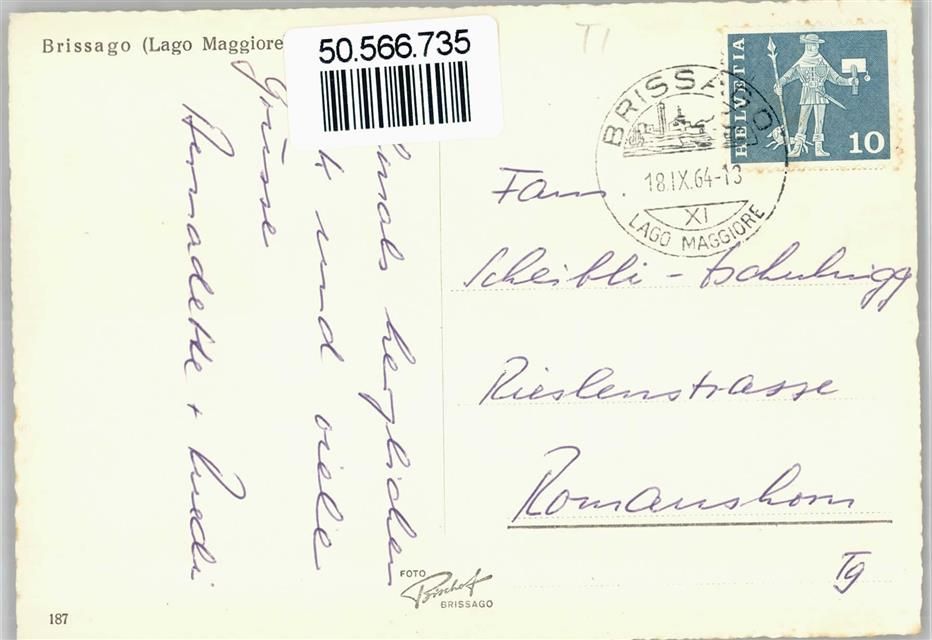 Brissago (Lago Maggiore
50.566.735
TI
HELVETIA
10
BRISSAGO
18.IX.64-13
XI
LAGO MAGGIORE
herzlichen
und viele
Grüsse
Bernadette + Ruedi
Fam.
Scheibli - Tschuhingg
Rieslenstrasse
Romanshorn
Tg
FOTO
Bischof
BRISSAGO
187